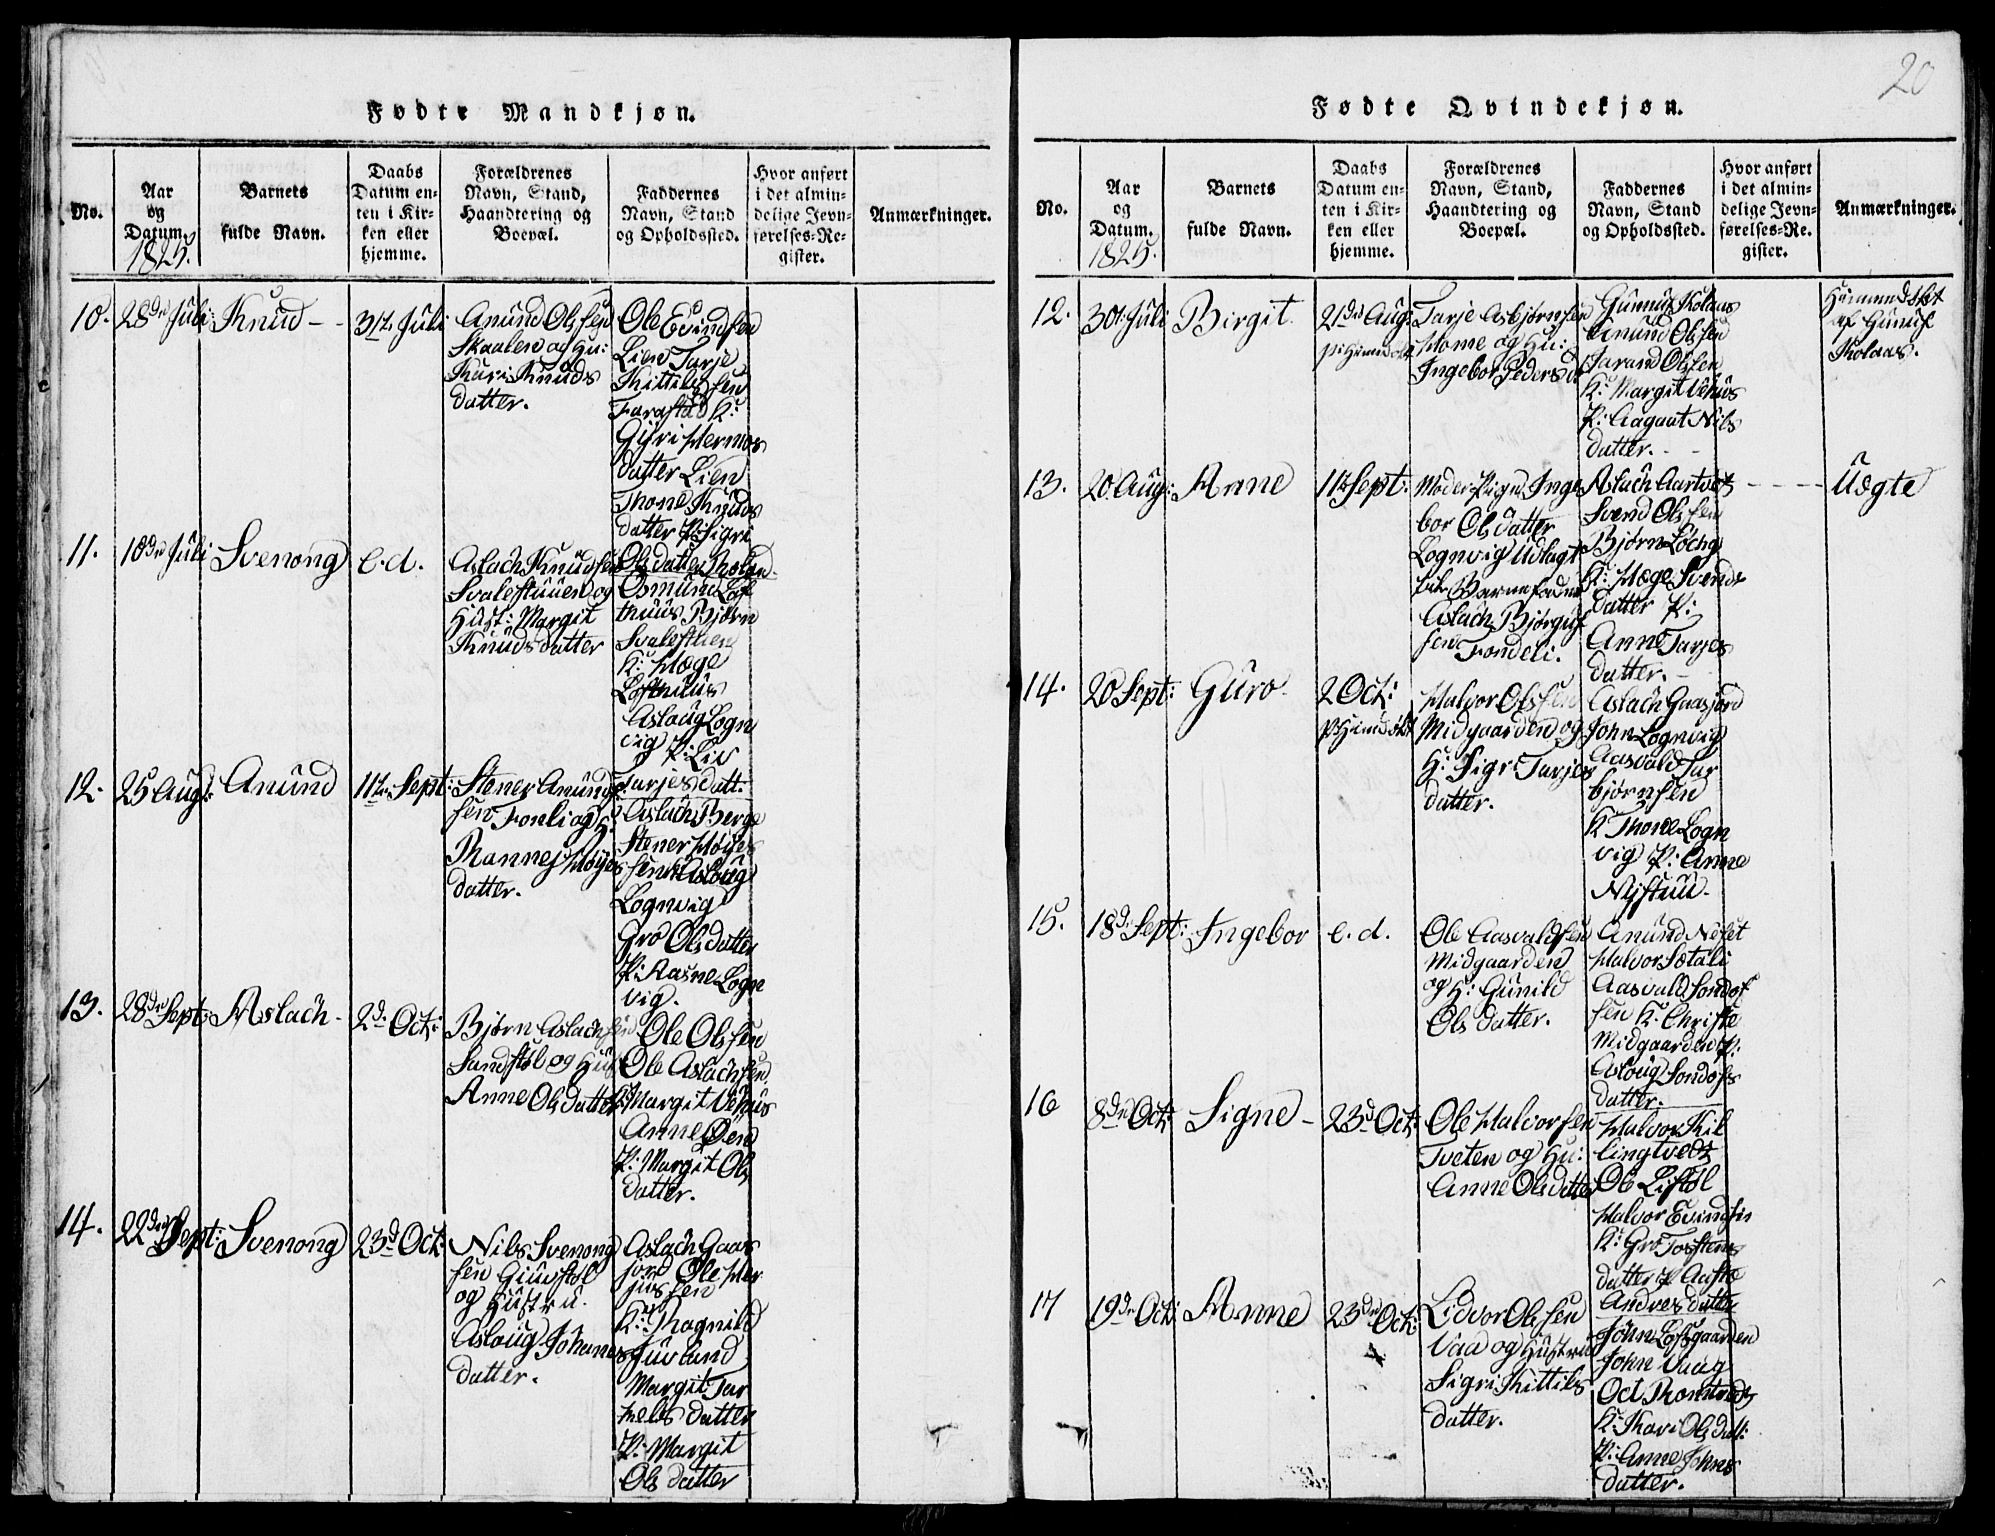 20
Fødte Mandkjøn.
No.
Aar
og
Datum.
1825.
Barnets
fulde Navn.
Daabs
Datum en-
ten i Kir-
ken eller
hjemme.
Forældrenes
Navn, Stand,
Haandtering og
Boepæl.
Faddernes
Navn, Stand
og Opholdssted.
Hvor anført
i det almin-
delige Jevn-
førelses-Re-
gister.
Anmærkninger.
10.
28de Juli
Knud
31te Juli
Anund Olssen
Skaalen og Hu:
Kari Knuds
datter.
Ole Evindsen
Lien Tarje
Kittilssen
K:
Gÿri Hermos
datter Lien
Thone Knuds
datter P: Sigri
Olsdatter
11.
10de Juli
Svenong
e. d.
Aslach Knudsen
Svalestuuen og
Hust: Margit
Knudsdatter
Osmund Lof
thuus Bjørn
Svalestuen
K: Hæge
Lofthuus
Aslaug Logn
vig P: Liv
Tarjesdatt:
12.
25 Aug:
Anund
11te Sept:
Stener Anund
sen Fonli og H:
Rannej Høÿes
datter.
Aslach Berge
Stener Høÿes
sen K: Aslaug
Lognvig
Gro Olsdatter
P: Aasne Logn
vig.
13.
28de Sept:
Aslach
2de Oct:
Bjørn Aslachsen
Sandstøl og Hus
Anne Olsdatter
Ole Olssen
Ole Aslachsen
K: Margit Vehuus
Anne Øen
P: Margit Ols
datter.
14.
22de Sept:
Svenong
23d Oct:
Nils Svenong
sen Giuvstøl
og Hustru.
Aslaug Johannes
datter.
Aslach Gaas
jord Ole Her
jussen
K: Ragnild
Juvland
Margit Tar
kelsdatter
P: Margit
Olsdatter
Fødte Qvindekjøn.
No.
Aar
og
Datum.
1825.
Barnets
fulde Navn.
Daabs
Datum en-
ten i Kir-
ken eller
hjemme.
Forældrenes
Navn, Stand,
Haandtering og
Boepæl.
Faddernes
Navn, Stand
og Opholdssted.
Hvor anført
i det almin-
delige Jevn-
førelses-Re-
gister.
Anmærkninger.
12.
30t Juli
Birgit.
21de Aug:
Tarje Asbjørnsen
Home og Hu:
Ingebor Peders d
Gunnuf Kolaas
Anund Olssen
Jarand Olssen
K: Margit Vehuus
P: Aagaat Nils
datter.
Hiemmedøbt
af Gunuf
Kolaas.
13.
20 Aug:
Anne
11te Sept:
Moder Pigen Inge
bor Olsdatter
Lognvig Udlagt
Barnefader
Aslach Bjørguf
sen Fondeli.
Aslach Aartvet
Svend Olssen
Bjørn
K: Hæge Svends
datter P:
Anne Tarjes
datter.
Uægte
14.
20 Sept:
Guro
2 Oct:
Halvor Olssen
Midgaarden og
H: Sigri Tarjes
datter.
Aslach Gaasjord
John Lognvig
Aasvald Tar
bjørnsen
K Thone Logn
vig P: Anne
Nÿstuu.
15.
18de Sept:
Ingebor
e. d.
Ole Aasvaldsen
Midgaarden
og H: Gunild
Olsdatter.
Anund Neset
Halvor Sætali
Aasvald Sondof
sen K. Christe
Midgaarden P:
Aslaug Sondofs
datter.
16
8de Oct:
Signe
23d Oct:
Ole Halvorsen
Tveten og Hu:
Anne Olsdatter
Halvor Kil
lingtvedt
Ole Listøl
Halvor Evindsen
K: Gro Tostens
datter P Aaste
Andresdatter
17
19de Oct:
Anne
23de Oct:
Lidvor Olssen
Vaa og Hustru
Sigri Kittils
datter.
John Lofsgaarden
John Vaag
Oct Romtvedt
K: Kari Olsdatt:
P: Anne Johns
datter.